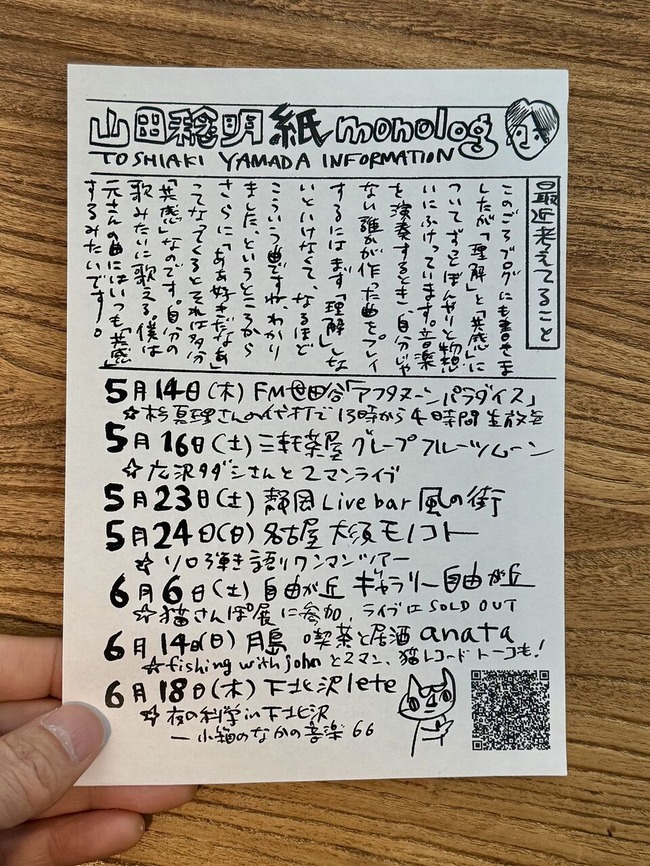 山田稔明 紙 monolog
TOSHIAKI YAMADA INFORMATION
最近考えてること
このごろブログにも書きま
したが「理解」と「共感」に
ついてずっとぼんやりと物想
いにふけっています。音楽
を演奏するとき、自分じゃ
ない誰かが作った曲をプレイ
するにはまず「理解」しな
いといけなくて、なるほど
こういう曲ですね、わかり
ました、というところから
さらに「ああ好きだなあ」
ってなってくるとそれは多分
「共感」なのです。自分の
歌みたいに歌える。僕は
元さんの曲にはいつも「共感」
するみたいです。
5月14日(木) FM世田谷「アフタヌーンパラダイス」
☆杉真理さんの代打で13時から4時間生放送
5月16日(土) 三軒茶屋 グレープフルーツムーン
☆広沢タダシさんと2マンライブ
5月23日(土) 静岡 Live bar 風の街
5月24日(日) 名古屋 大須モノコト
☆ソロ弾き語りワンマンツアー
6月6日(土) 自由が丘 ギャラリー自由が丘
☆猫さんぽ展に参加、ライブは SOLD OUT
6月14日(日) 月島 喫茶と居酒 anata
☆fishing with john と2マン、猫レコードトークも!
6月18日(木) 下北沢 lete
☆夜の科学 in 下北沢
―小箱のなかの音楽 66